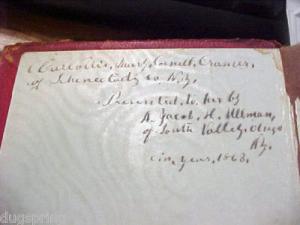 Mary Cornell Cramer,
of Schenectady co. N.Y.
Presented to her by
A. Jacob. H. Ulman,
of South Valley, Otsego
N.Y.
in year, 1863.
dugspring
dugspring